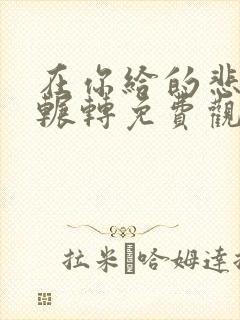 在你給的悲
輾轉免費觀
拉米 哈姆達